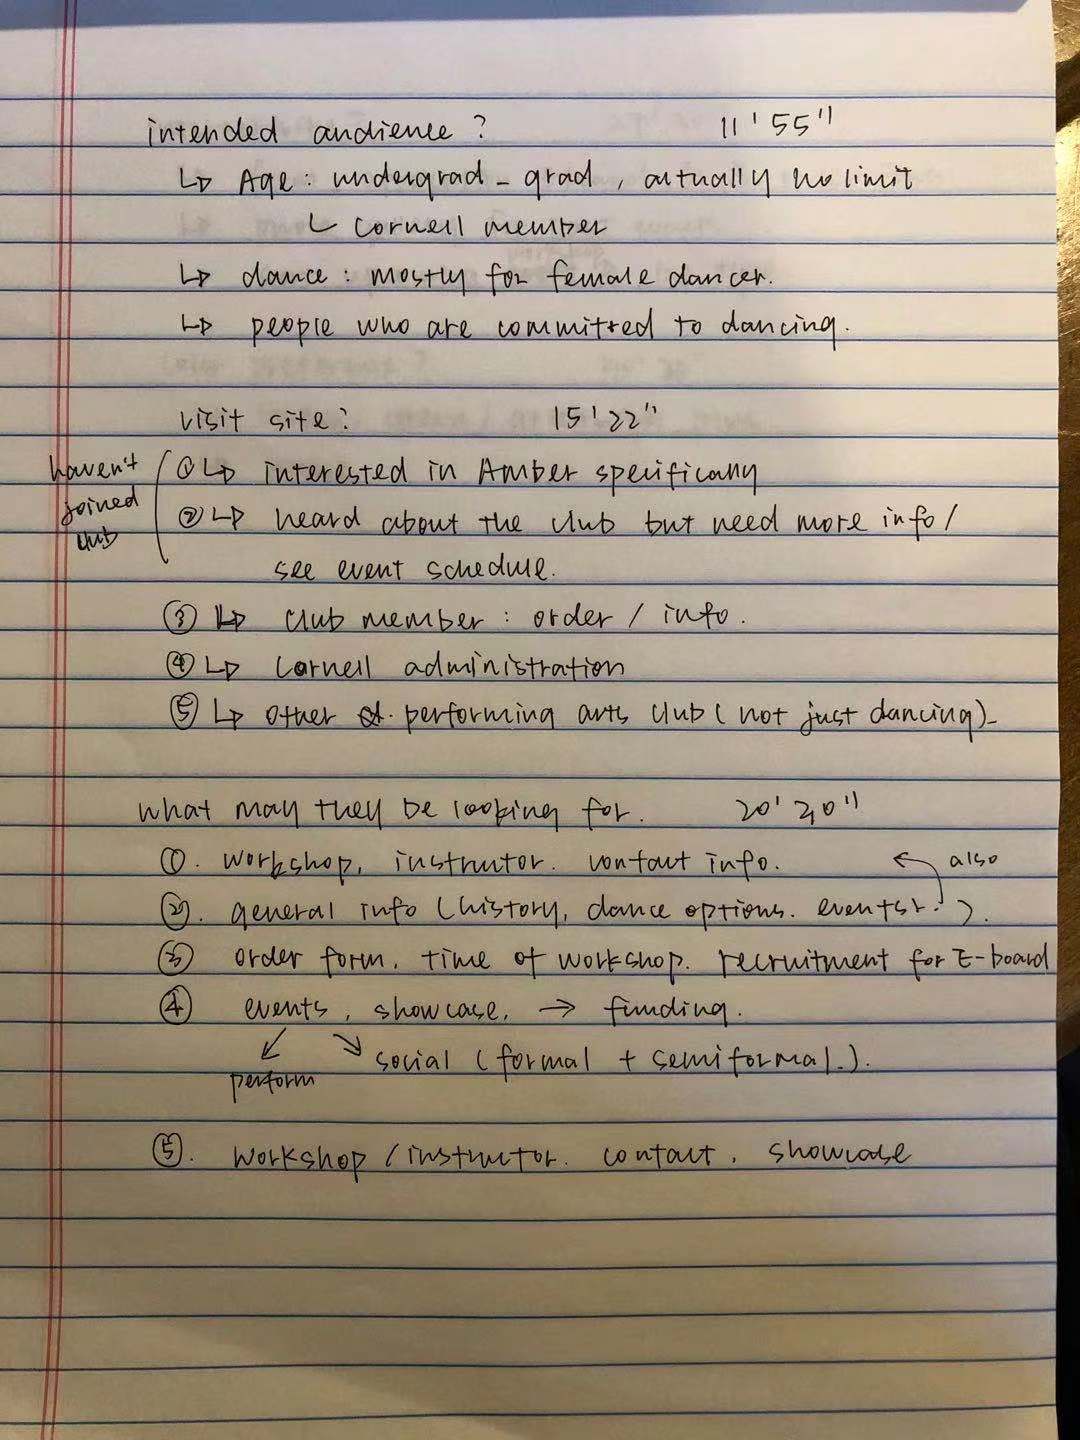 intended audience ? 11'55"
↳ Age : undergrad - grad , actually no limit
↳ cornell member
↳ dance : mostly for female dancer.
↳ people who are committed to dancing.
visit site ? 15'22"
haven't joined club
① ↳ interested in Amber specifically
② ↳ heard about the club but need more info /
see event schedule.
③ ↳ club member : order / info .
④ ↳ Cornell administration
⑤ ↳ other performing arts club ( not just dancing ).
what may they be looking for. 20'20"
①. workshop, instructor. contact info. ← also
②. general info ( history, dance options. events. ).
③ order form. time of workshop. recruitment for E-board
④ events , showcase. → funding.
↙ perform ↘ social ( formal + semiformal. ).
⑤. workshop / instructor. contact , showcase